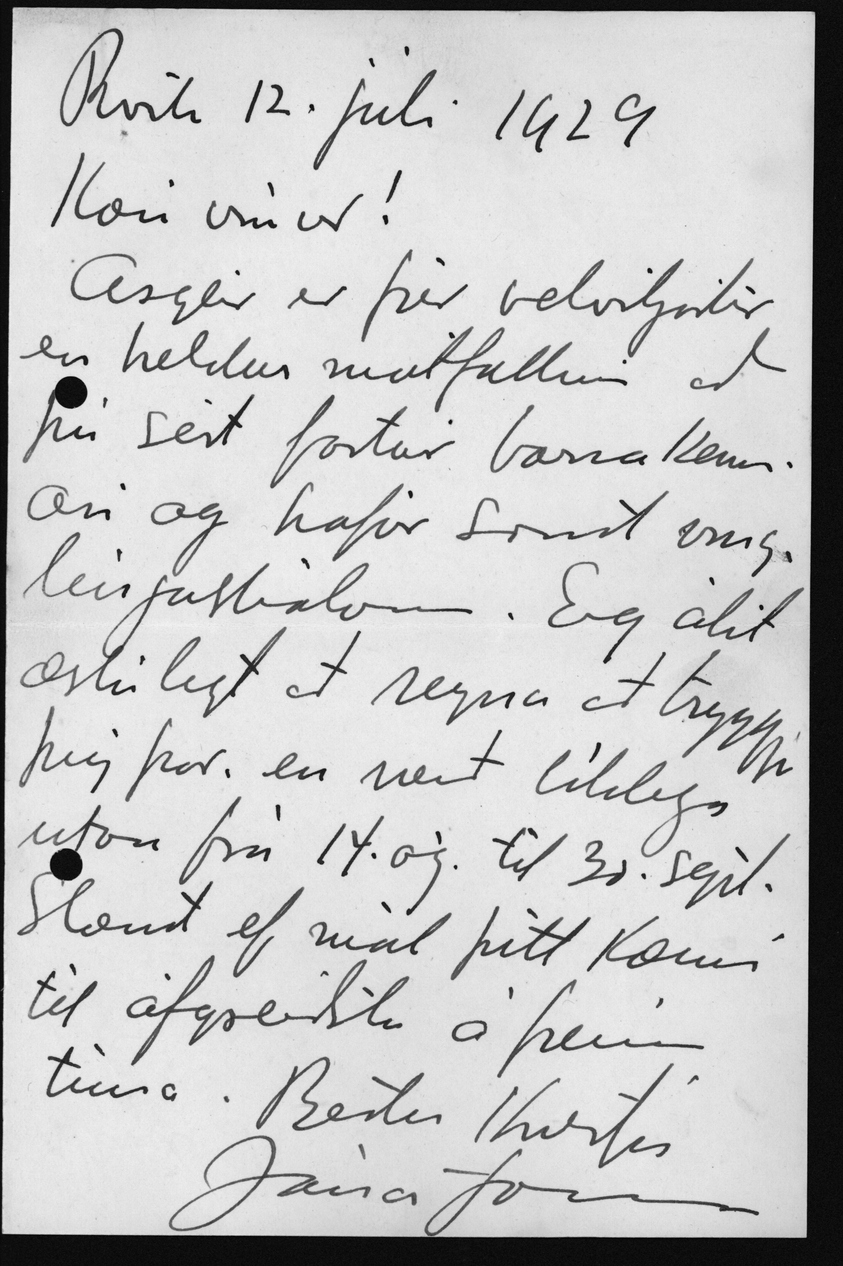 Rvík 12. júlí 1929
Kæri vinur!
Ásgeir er þér velviljaður
en heldur mótfallinn að
þú sért fastur barnakenn-
ari og hafir samt ung-
lingaskólann. Ég álít
æskilegt að reyna að tryggja
þig þar. en verð líklega
utan frá 14. ág. til 30. sept.
Slæmt ef mál þitt kæmi
til afgreiðslu á þeim
tíma. Bestu kveðjur
Jónas Jónsson